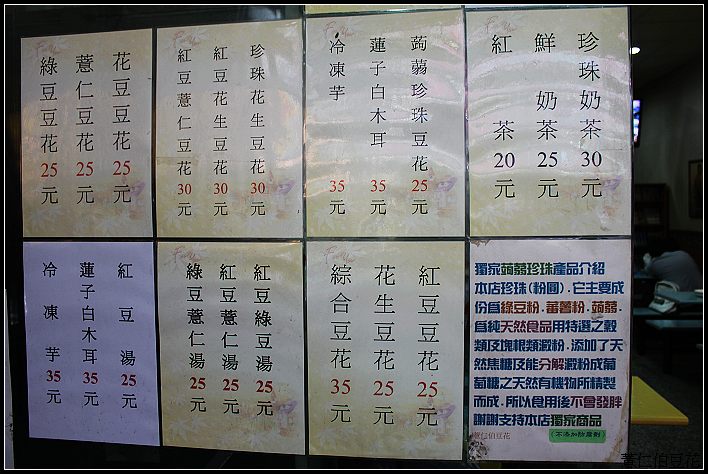 花豆豆花25元
薏仁豆花25元
綠豆豆花25元
珍珠花生豆花30元
紅豆花生豆花30元
紅豆薏仁豆花30元
蒟蒻珍珠豆花25元
蓮子白木耳35元
冷凍芋35元
珍珠奶茶30元
鮮奶茶25元
紅茶20元
紅豆湯25元
蓮子白木耳35元
冷凍芋35元
紅豆綠豆湯25元
紅豆薏仁湯25元
綠豆薏仁湯25元
紅豆豆花25元
花生豆花25元
綜合豆花35元
獨家蒟蒻珍珠產品介紹
本店珍珠(粉圓).它主要成
份爲綠豆粉.蕃薯粉.蒟蒻.
爲純天然食品用特選之穀
類及塊根類澱粉.添加了天
然焦糖及能分解澱粉成葡
萄糖之天然有機物所精製
而成.所以食用後不會發胖
謝謝支持本店獨家商品
薏仁伯豆花
(不添加防腐劑)
薏仁伯豆花